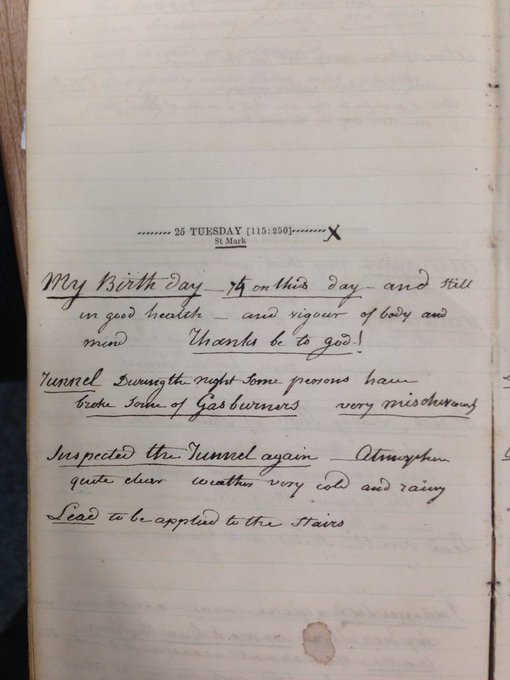 25 TUESDAY [115:250] X
St Mark
My Birth day – 74 on this day – and still
in good health – and vigour of body and
mind Thanks be to god!
Tunnel During the night some persons have
broke some of Gas burners very mischievously
Inspected the Tunnel again – Atmosphere
quite clear weather very cold and rainy
Lead to be applied to the stairs